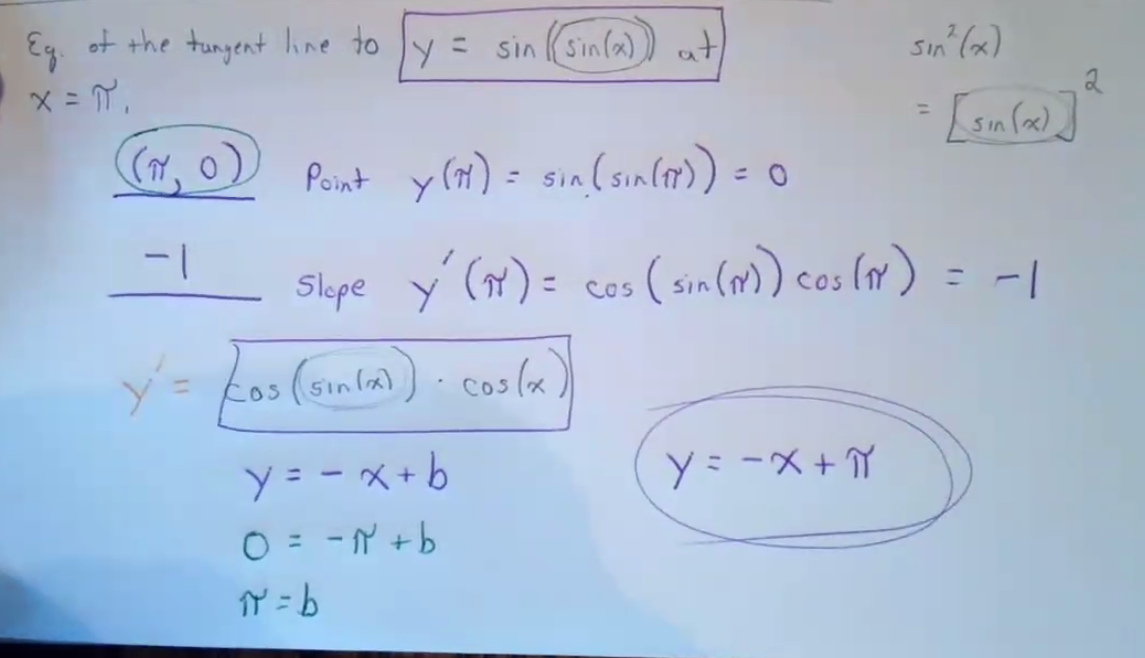 Eq. of the tangent line to y = sin(sin(x)) at
x = π.
sin²(x)
= [sin(x)]²
(π, 0) Point y(π) = sin(sin(π)) = 0
-1 Slope y'(π) = cos(sin(π)) cos(π) = -1
y' = cos(sin(x)) · cos(x)
y = -x + b
0 = -π + b
π = b
y = -x + π